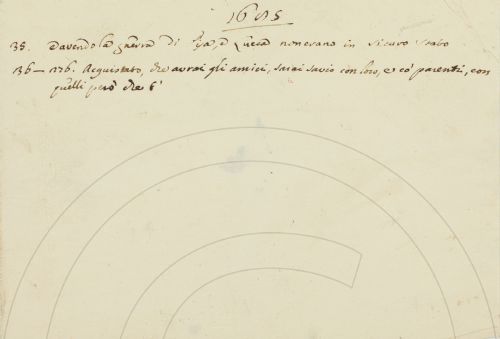 1685
35. davendo la guerra di Pisa, e Lucca non erano in sicuro stato
36 — 176. Acquistato, che avrai gli amici, sarai savio con loro, e co' parenti, con
quelli però che